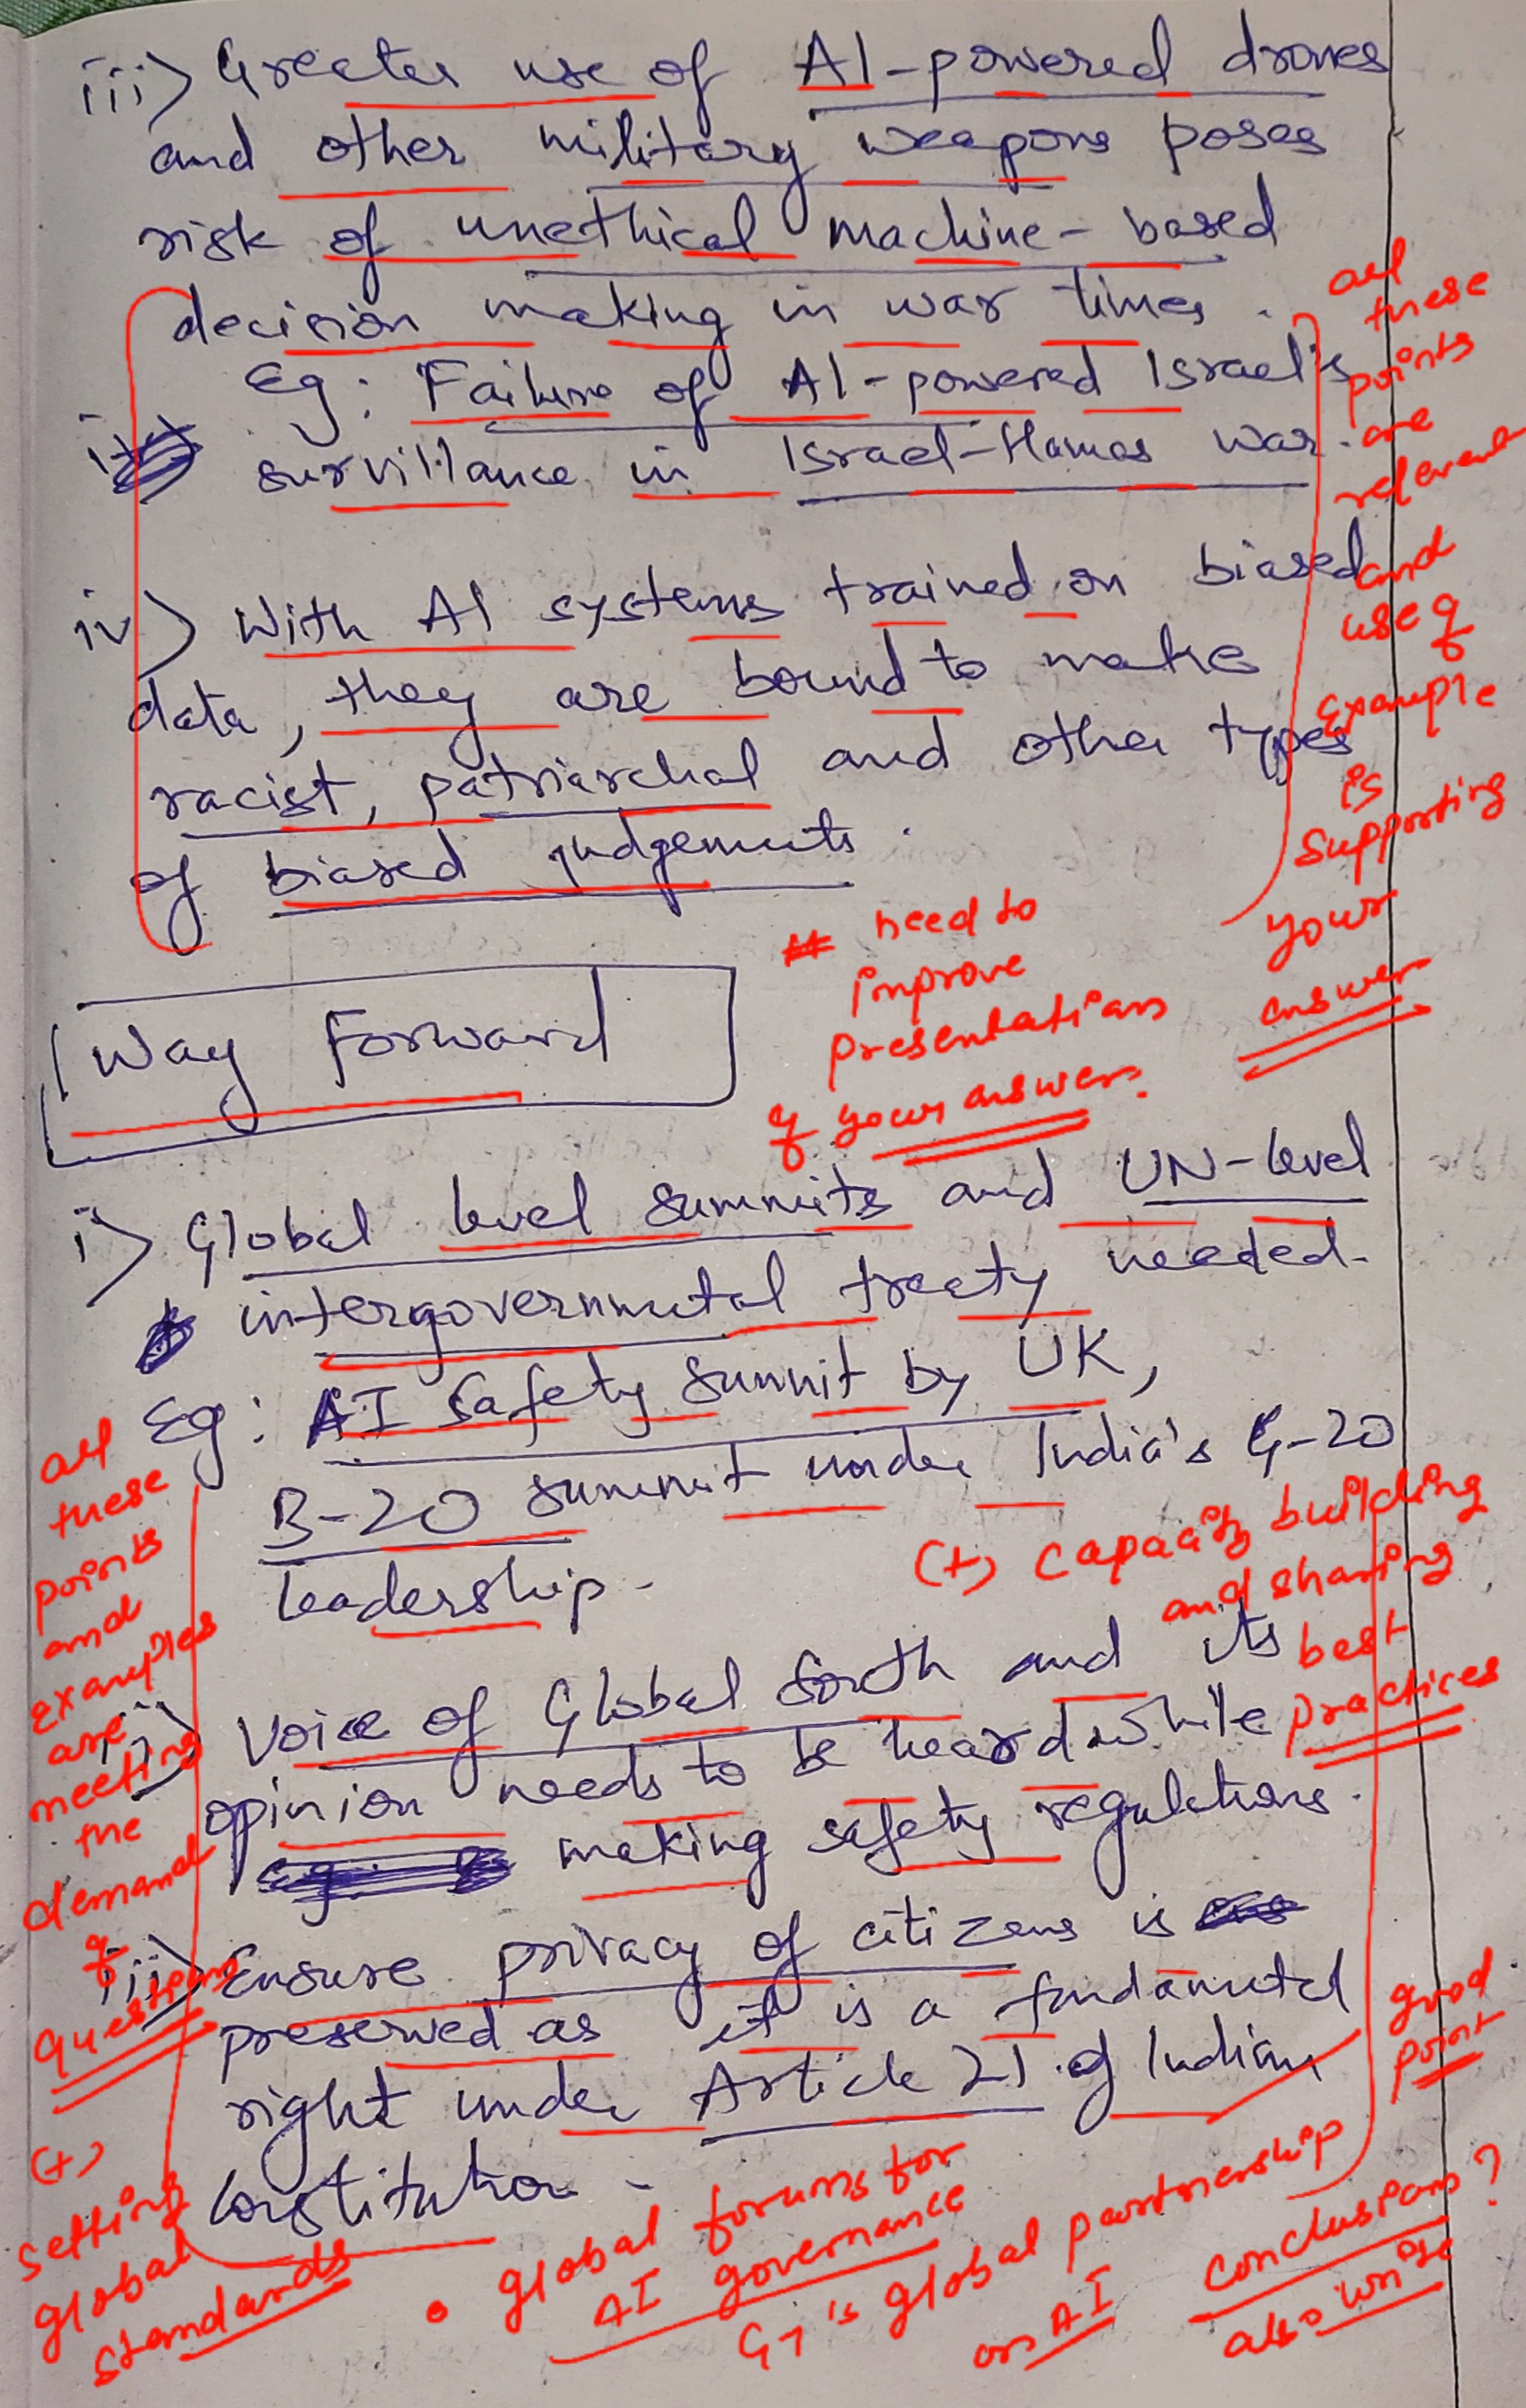 iii) Greater use of AI-powered drones
and other military weapons poses
risk of unethical machine-based
decision making in war times.
Eg: Failure of AI-powered Israel's
survillance in Israel-Hamas war.
all
these
points
are
relevant
and
use of
Example
is
Supporting
your
answer
iv) With AI systems trained on biased
data, they are bound to make
racist, patriarchal and other types
of biased judgements.
need to
improve
presentations
of your answers.
Way Forward
i) Global level summits and UN-level
intergovernmental treaty needed.
Eg: AI Safety Summit by UK,
B-20 summit under India's G-20
leadership.
(+) capacity building
and sharing
best
practices
all
these
points
and
examples
are
meeting
the
demand
of
question
ii) Voice of Global South and its
opinion needs to be heard while
making safety regulations.
iii) Ensure privacy of citizens is
preserved as it is a fundamental
right under Article 21 of Indian
Constitution.
good
point
(+)
setting
global
standards
• global forums for
AI governance
G7's global partnership
on AI
conclusion?
also write